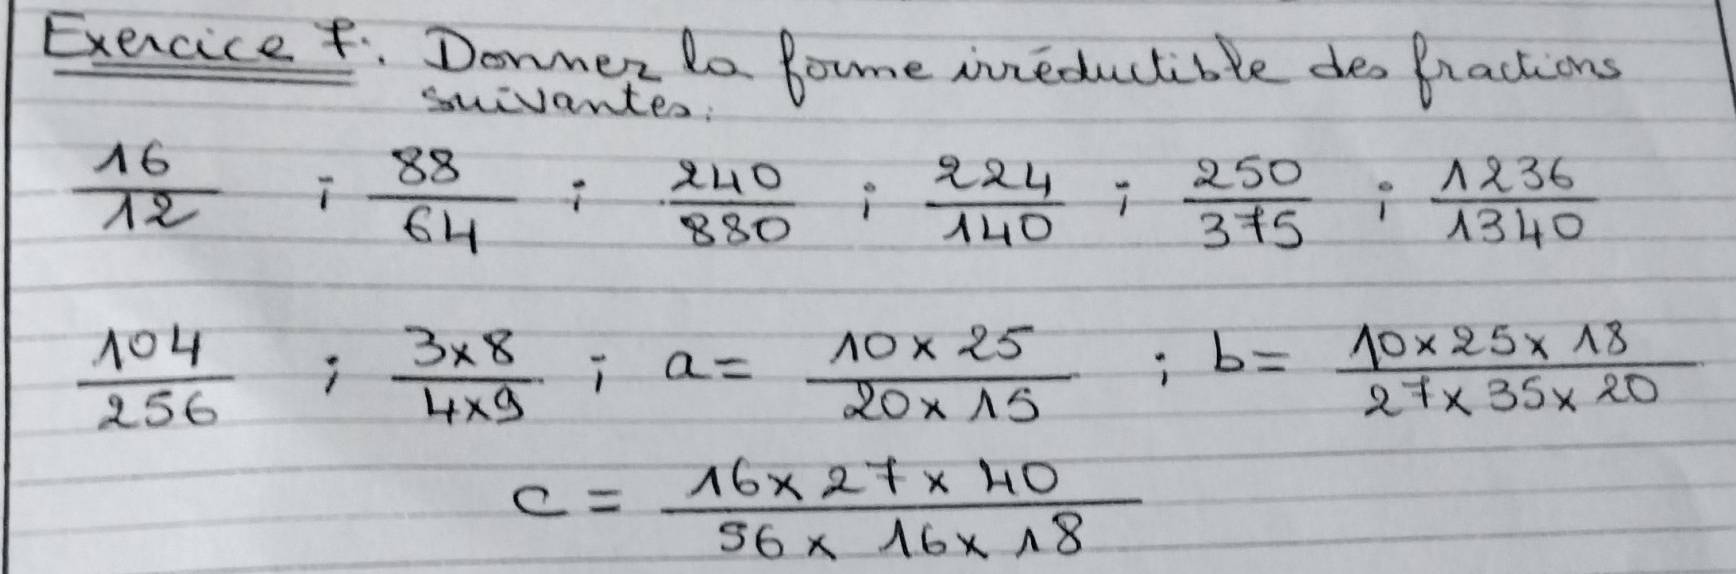 Exercice 7: Donner la forme irréductible des fractions
suivantes:
16/12 ; 88/64 ; 240/880 ; 224/140 ; 250/375 ; 1236/1340
104/256 ; 3x8/4x9 ; a = 10x25/20x15 ; b = 10x25x18/27x35x20
c = 16x27x40/56x16x18